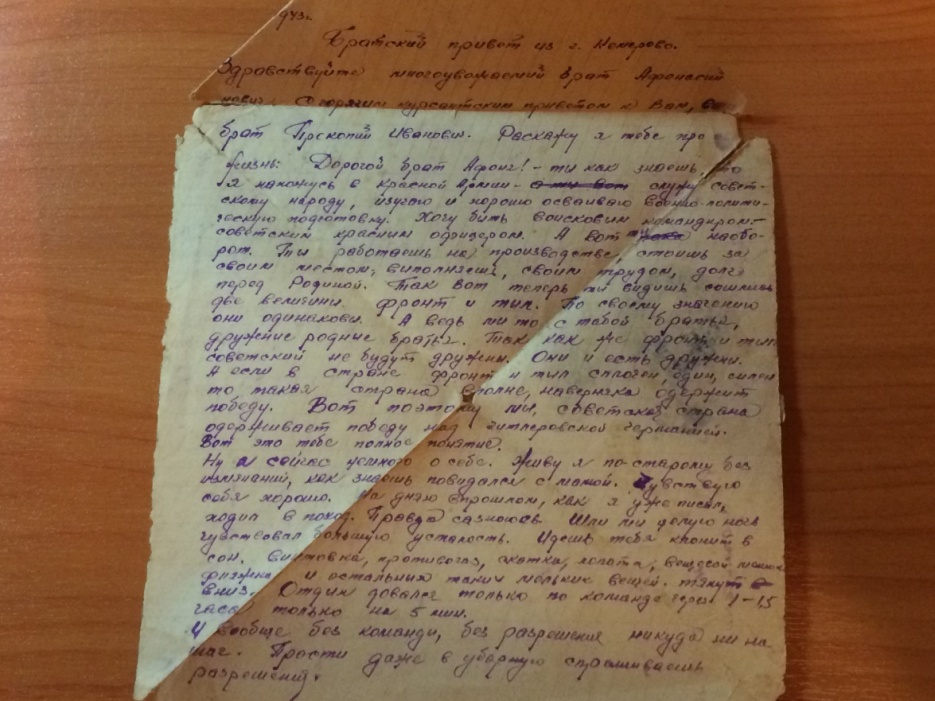 943г.
Братский привет из г. Кемерово.
Здравствуйте многоуважаемий брат Афонасий
нович, С горячим курсантским приветом к Вам,
брат Прокопий Иванович. Раскажу я тебе про
жизнь: Дорогой брат Афоня! – ти как знаешь, что
я нахожусь в красной Армии – служу совет-
скому народу, изучаю и хорошо осваиваю военно-полити-
ческую подготовку. Хочу бить войсковим командиром –
советским красним офицером. А вот ти наобо-
рот. Ти работаешь на производстве, стоишь за
своим местом, виполняешь, своим трудом, долг
перед Родиной. Так вот теперь ти видишь сошлись
две величини фронт и тил. По своему значению
они одинакови. А ведь ми то с тобой братья,
дружние родние братья. Так как же фронт и тил
советский не будут дружни. Они и есть дружни.
А если в стране фронт и тил сплочен, един, силен
то такая страна вполне, наверняка одержит
победу. Вот поэтому ми, советская страна
одерживает победу над гитлеровской германией.
Вот это тебе полное понятие.
Ну а сейчас немного о себе. Живу я по-старому без
изменений, как знаешь повидался с мамой. Чувствую
себя хорошо. На днях прошлом, как я уже писал,
ходил в поход. Правда сазнаюсь Шли ми целую ночь
чувствовал большую усталость. Идешь тебя клонит в
сон. винтовка, противогаз, скатка, лопата, вещевой мешок
фляжка и остальних таких мелких вещей. тянут
вниз. Отдих давался только по команде через 1–1,5
часа только на 5 мин.
И вообще без команди, без разрешения никуда ни на
шаг. Прости даже в уборную спрашиваешь
разрешения.